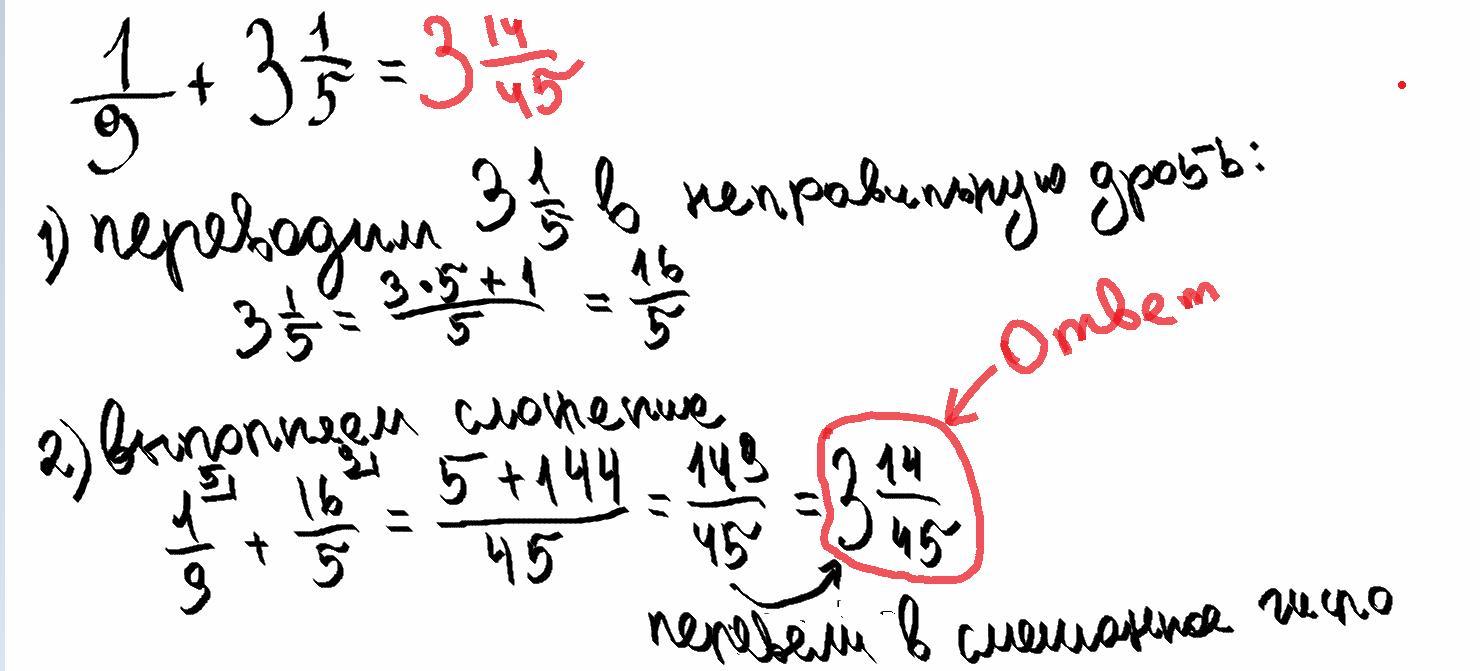 1/9 + 3 1/5 = 3 14/45
1) переводим 3 1/5 в неправильную дробь:
3 1/5 = (3·5+1)/5 = 16/5
Ответ
2) выполняем сложение
1/9 ⁵ + 16/5 ⁹ = (5+144)/45 = 149/45 = 3 14/45
перевели в смешанное число